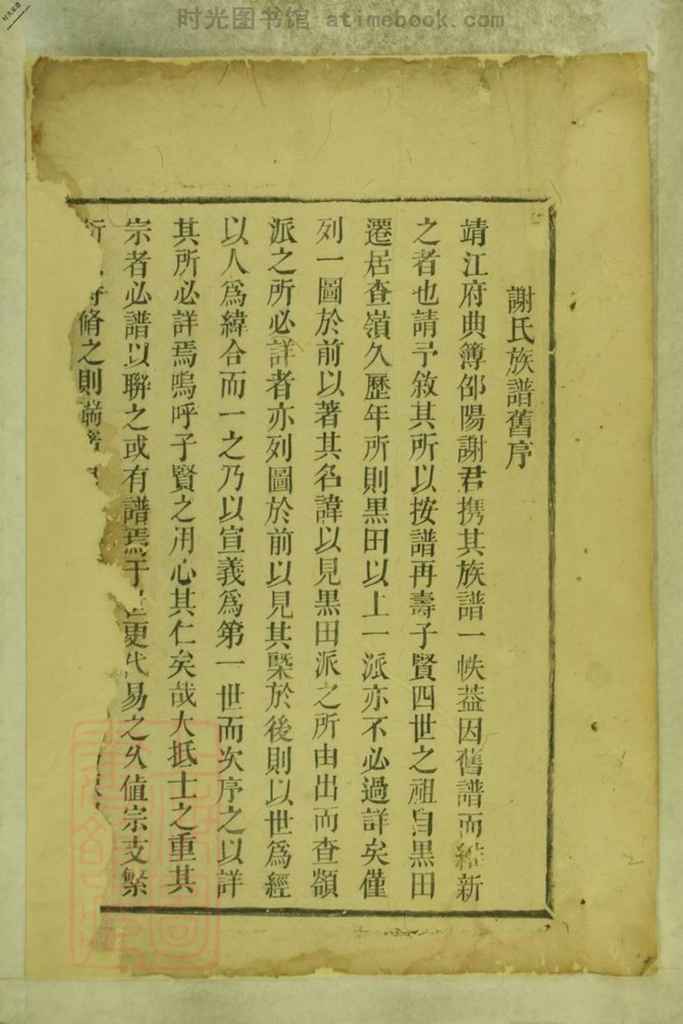 时光图书馆 atimebook.com
謝氏族譜舊序
靖江府典簿邵陽謝君携其族譜一帙葢因舊譜而續新
之者也請予敘其所以按譜再壽子賢四世之祖自黑田
遷居查嶺久歷年所則黑田以上一派亦不必過詳矣僅
列一圖於前以著其名諱以見黑田派之所由出而查嶺
派之所必詳者亦列圖於前以見其槩於後則以世爲經
以人爲緯合而一之乃以宣義爲第一世而次序之以詳
其所必詳焉嗚呼子賢之用心其仁矣哉大抵士之重其
宗者必譜以聯之或有譜焉于更代易之久值宗支繁
脩之則